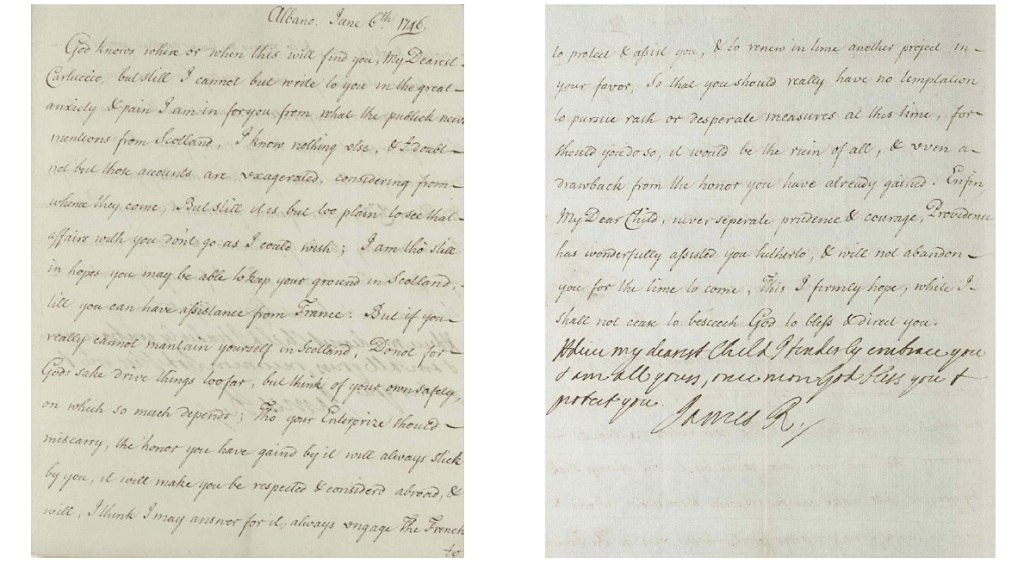 Albano. June 6th 1746.
God knows where or when this will find you, My Dearest
Carluccio, but still I cannot but write to you in the great
anxiety & pain I am in for you from what the publick news
mentions from Scotland, I know nothing else, & I doubt
not but those accounts are exagerated, considering from
whence they come, But still it is but too plain to see that
affairs with you don't go as I could wish; I am tho' still
in hopes you may be able to keep your ground in Scotland,
till you can have assistance from France: But if you
really cannot mantain yourself in Scotland, Do not for
Gods sake drive things too far, but think of your own safety,
on which so much depends; Tho' your Enterprize should
miscarry, the honor you have gaind by it will always stick
by you, it will make you be respected & considerd abroad, &
will, I think I may answer for it, always engage the French
to
to protect & assist you, & to renew in time another project in
your favor, So that you should really have no temptation
to pursue rash or desperate measures at this time, for
should you do so, it would be the ruin of all, & even a
drawback from the honor you have already gained. Enfin,
My Dear Child, never seperate prudence & courage, Providence
has wonderfully assisted you hitherto, & will not abandon
you for the time to come, This I firmly hope, while I
shall not cease to beseech God to bless & direct you.
Adieu my dearest Child I tenderly embrace you
& am all yours, once more God bless you &
protect you.
James R.